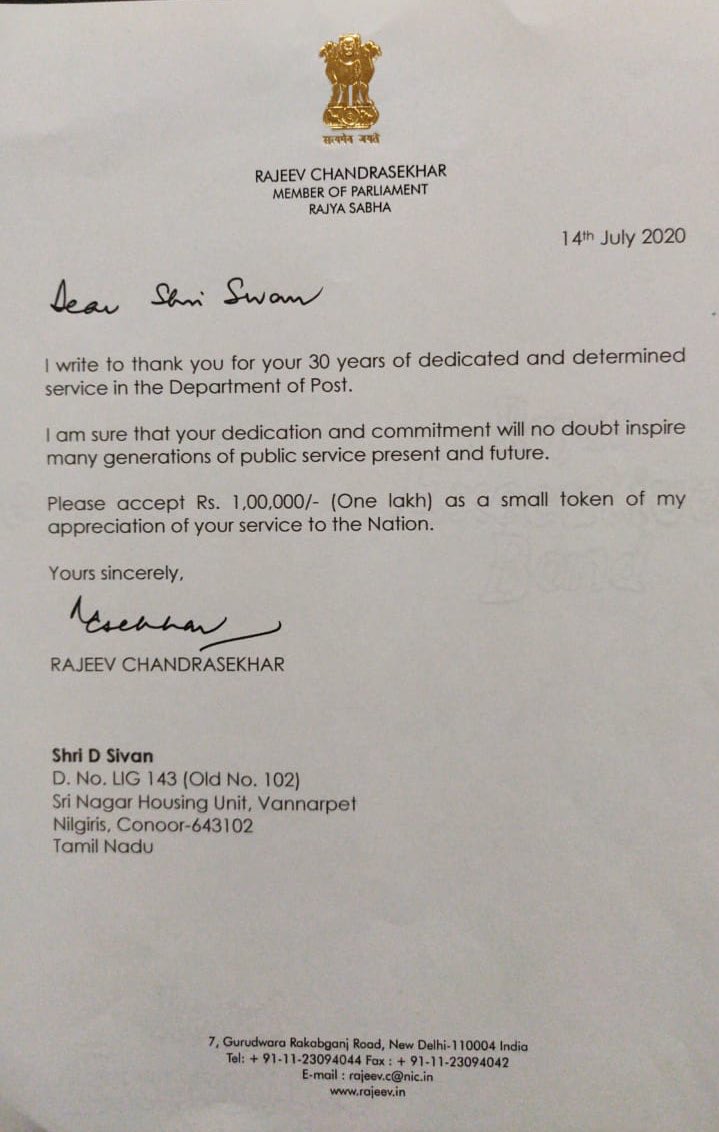 सत्यमेव जयते
RAJEEV CHANDRASEKHAR
MEMBER OF PARLIAMENT
RAJYA SABHA
14th July 2020
Dear Shri Sivan
I write to thank you for your 30 years of dedicated and determined
service in the Department of Post.
I am sure that your dedication and commitment will no doubt inspire
many generations of public service present and future.
Please accept Rs. 1,00,000/- (One lakh) as a small token of my
appreciation of your service to the Nation.
Yours sincerely,
RAJEEV CHANDRASEKHAR
Shri D Sivan
D. No. LIG 143 (Old No. 102)
Sri Nagar Housing Unit, Vannarpet
Nilgiris, Conoor-643102
Tamil Nadu
7, Gurudwara Rakabganj Road, New Delhi-110004 India
Tel: + 91-11-23094044 Fax : + 91-11-23094042
E-mail : rajeev.c@nic.in
www.rajeev.in